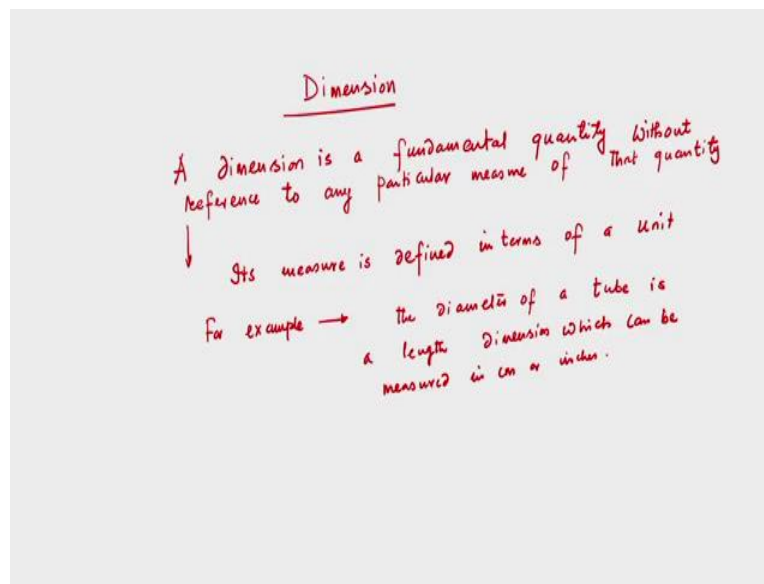 Dimension
A dimension is a fundamental quantity without
reference to any particular measure of that quantity
↓
Its measure is defined in terms of a unit
For example → the diameter of a tube is
a length dimension which can be
measured in cm or inches.